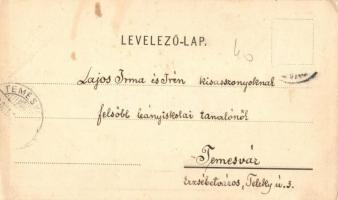 LEVELEZŐ-LAP.
40
Lajos Irma és Irén kisasszonyoknak
TEMES
felsőbb leányiskolai tanulónők
Temesvár
Erzsébetváros, Teleky u. 3.